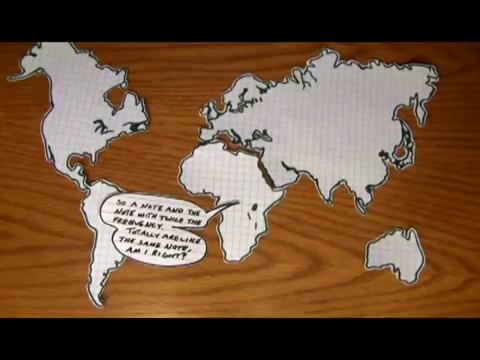 SO A NOTE AND THE
NOTE WITH TWICE THE
FREQUENCY.
TOTALLY ARE LIKE
THE SAME NOTE,
AM I RIGHT?